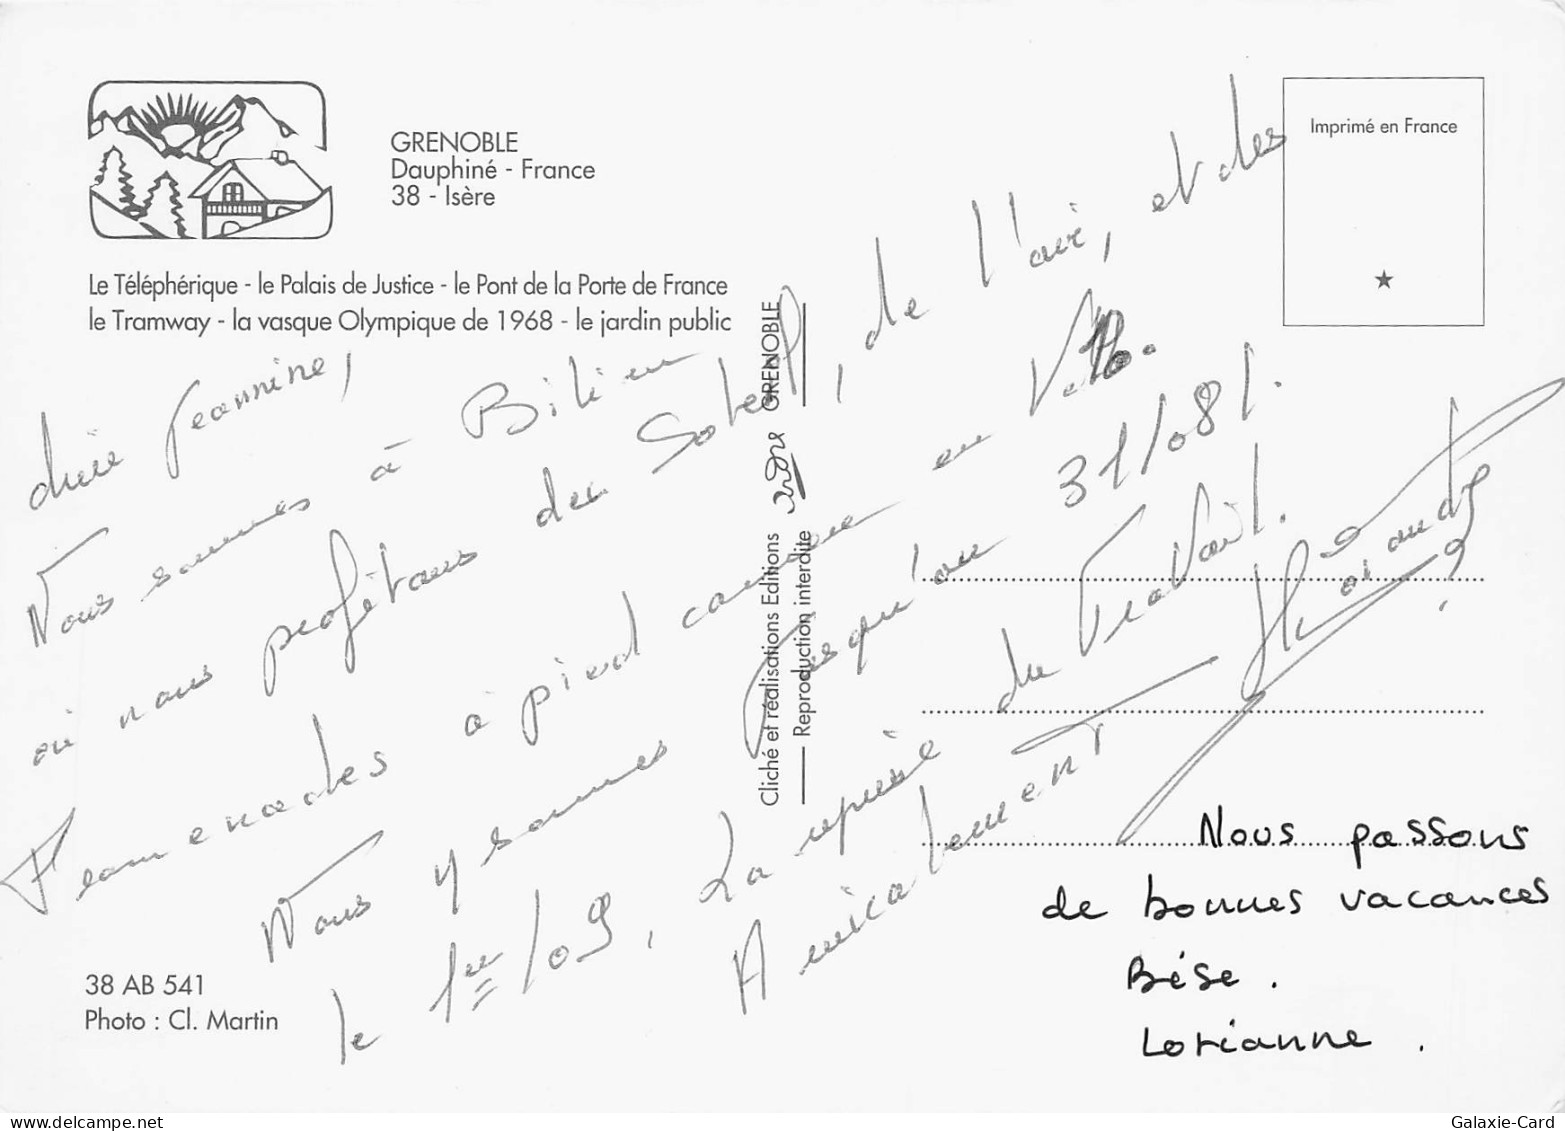 GRENOBLE
Dauphiné - France
38 - Isère
Imprimé en France
Le Téléphérique - le Palais de Justice - le Pont de la Porte de France
le Tramway - la vasque Olympique de 1968 - le jardin public
chère Jeannine,
Nous sommes à Bilieu
où nous profitons du Soleil, de l'air, et des
Promenades à pied comme en Vélo.
Nous y sommes Jusqu'au 31/08/.
le 1er/09, La reprise du Travail.
Amicalement
Cliché et réalisations Editions
GRENOBLE
Reproduction interdite
Nous passons
de bonnes vacances
Bése.
Lorianne.
38 AB 541
Photo : Cl. Martin
Galaxie-Card